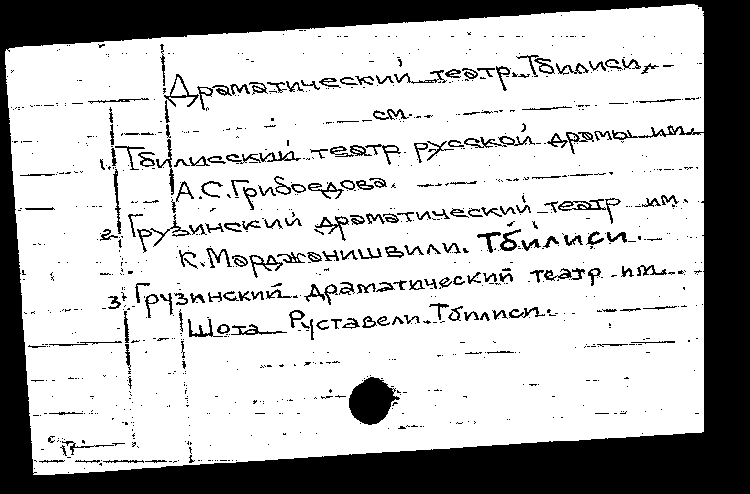 Драматический театр. Тбилиси,
см.
1. Тбилисский театр русской драмы им.
А.С.Грибоедова.
2. Грузинский драматический театр им.
К.Марджанишвили. Тбилиси.
3. Грузинский драматический театр им.
Шота Руставели. Тбилиси.